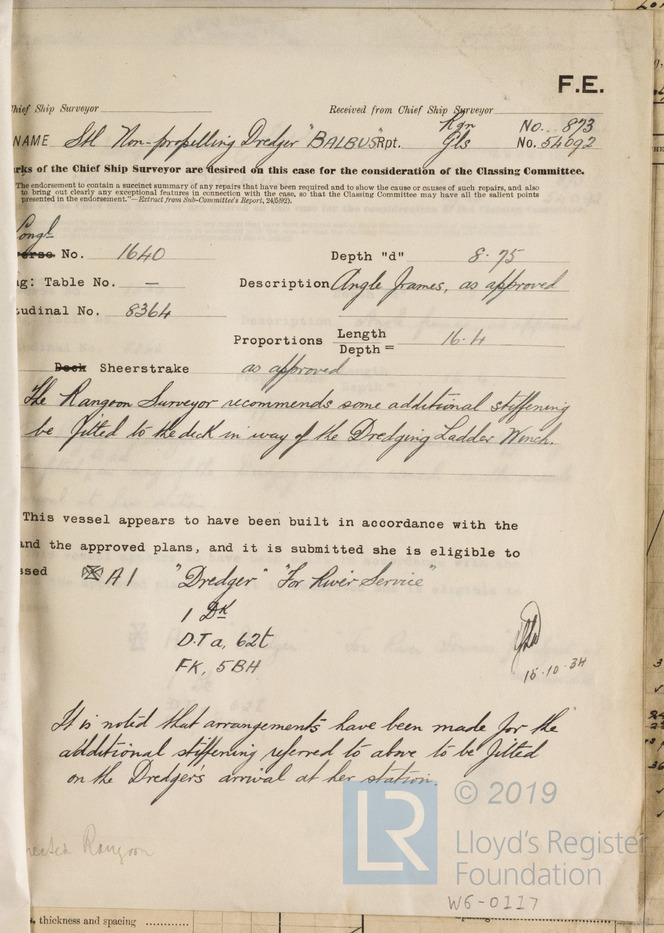 F.E.
Chief Ship Surveyor Received from Chief Ship Surveyor
Rgn No. 873
NAME Stl Non-propelling Dredger "BALBUS" Rpt. Gls No. 54092
rks of the Chief Ship Surveyor are desired on this case for the consideration of the Classing Committee.
The endorsement to contain a succinct summary of any repairs that have been required and to show the cause or causes of such repairs, and also
to bring out clearly any exceptional features in connection with the case, so that the Classing Committee may have all the salient points
presented in the endorsement."—Extract from Sub-Committee's Report, 24/5/92).
Longl
erse No. 1640 Depth "d" 8.75
g: Table No. — Description Angle frames, as approved
udinal No. 8364
Proportions Length
Depth = 16.4
Deck Sheerstrake as approved
The Rangoon Surveyor recommends some additional stiffening
be fitted to the deck in way of the Dredging Ladder Winch.
This vessel appears to have been built in accordance with the
and the approved plans, and it is submitted she is eligible to
ssed A1 "Dredger" "For River Service"
1 Dk
D.Ta, 62t
FK, 5BH
15.10.34
It is noted that arrangements have been made for the
additional stiffening referred to above to be fitted
on the Dredger's arrival at her station.
Rangoon
LR © 2019
Lloyd's Register
Foundation
W6-0117
, thickness and spacing